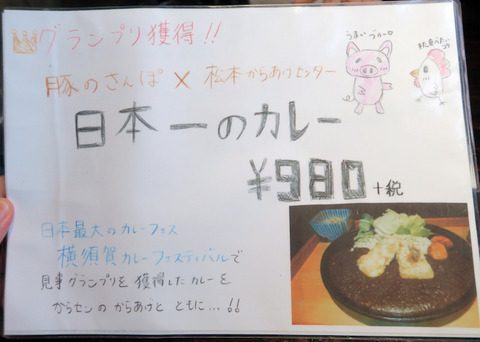 グランプリ獲得!!
豚のさんぽ × 松本からあげセンター
うまいブヒ〜
日本一のカレー
¥980 +税
日本最大のカレーフェス
横須賀カレーフェスティバルで
見事グランプリを獲得したカレーを
からセンのからあげと ともに…!!